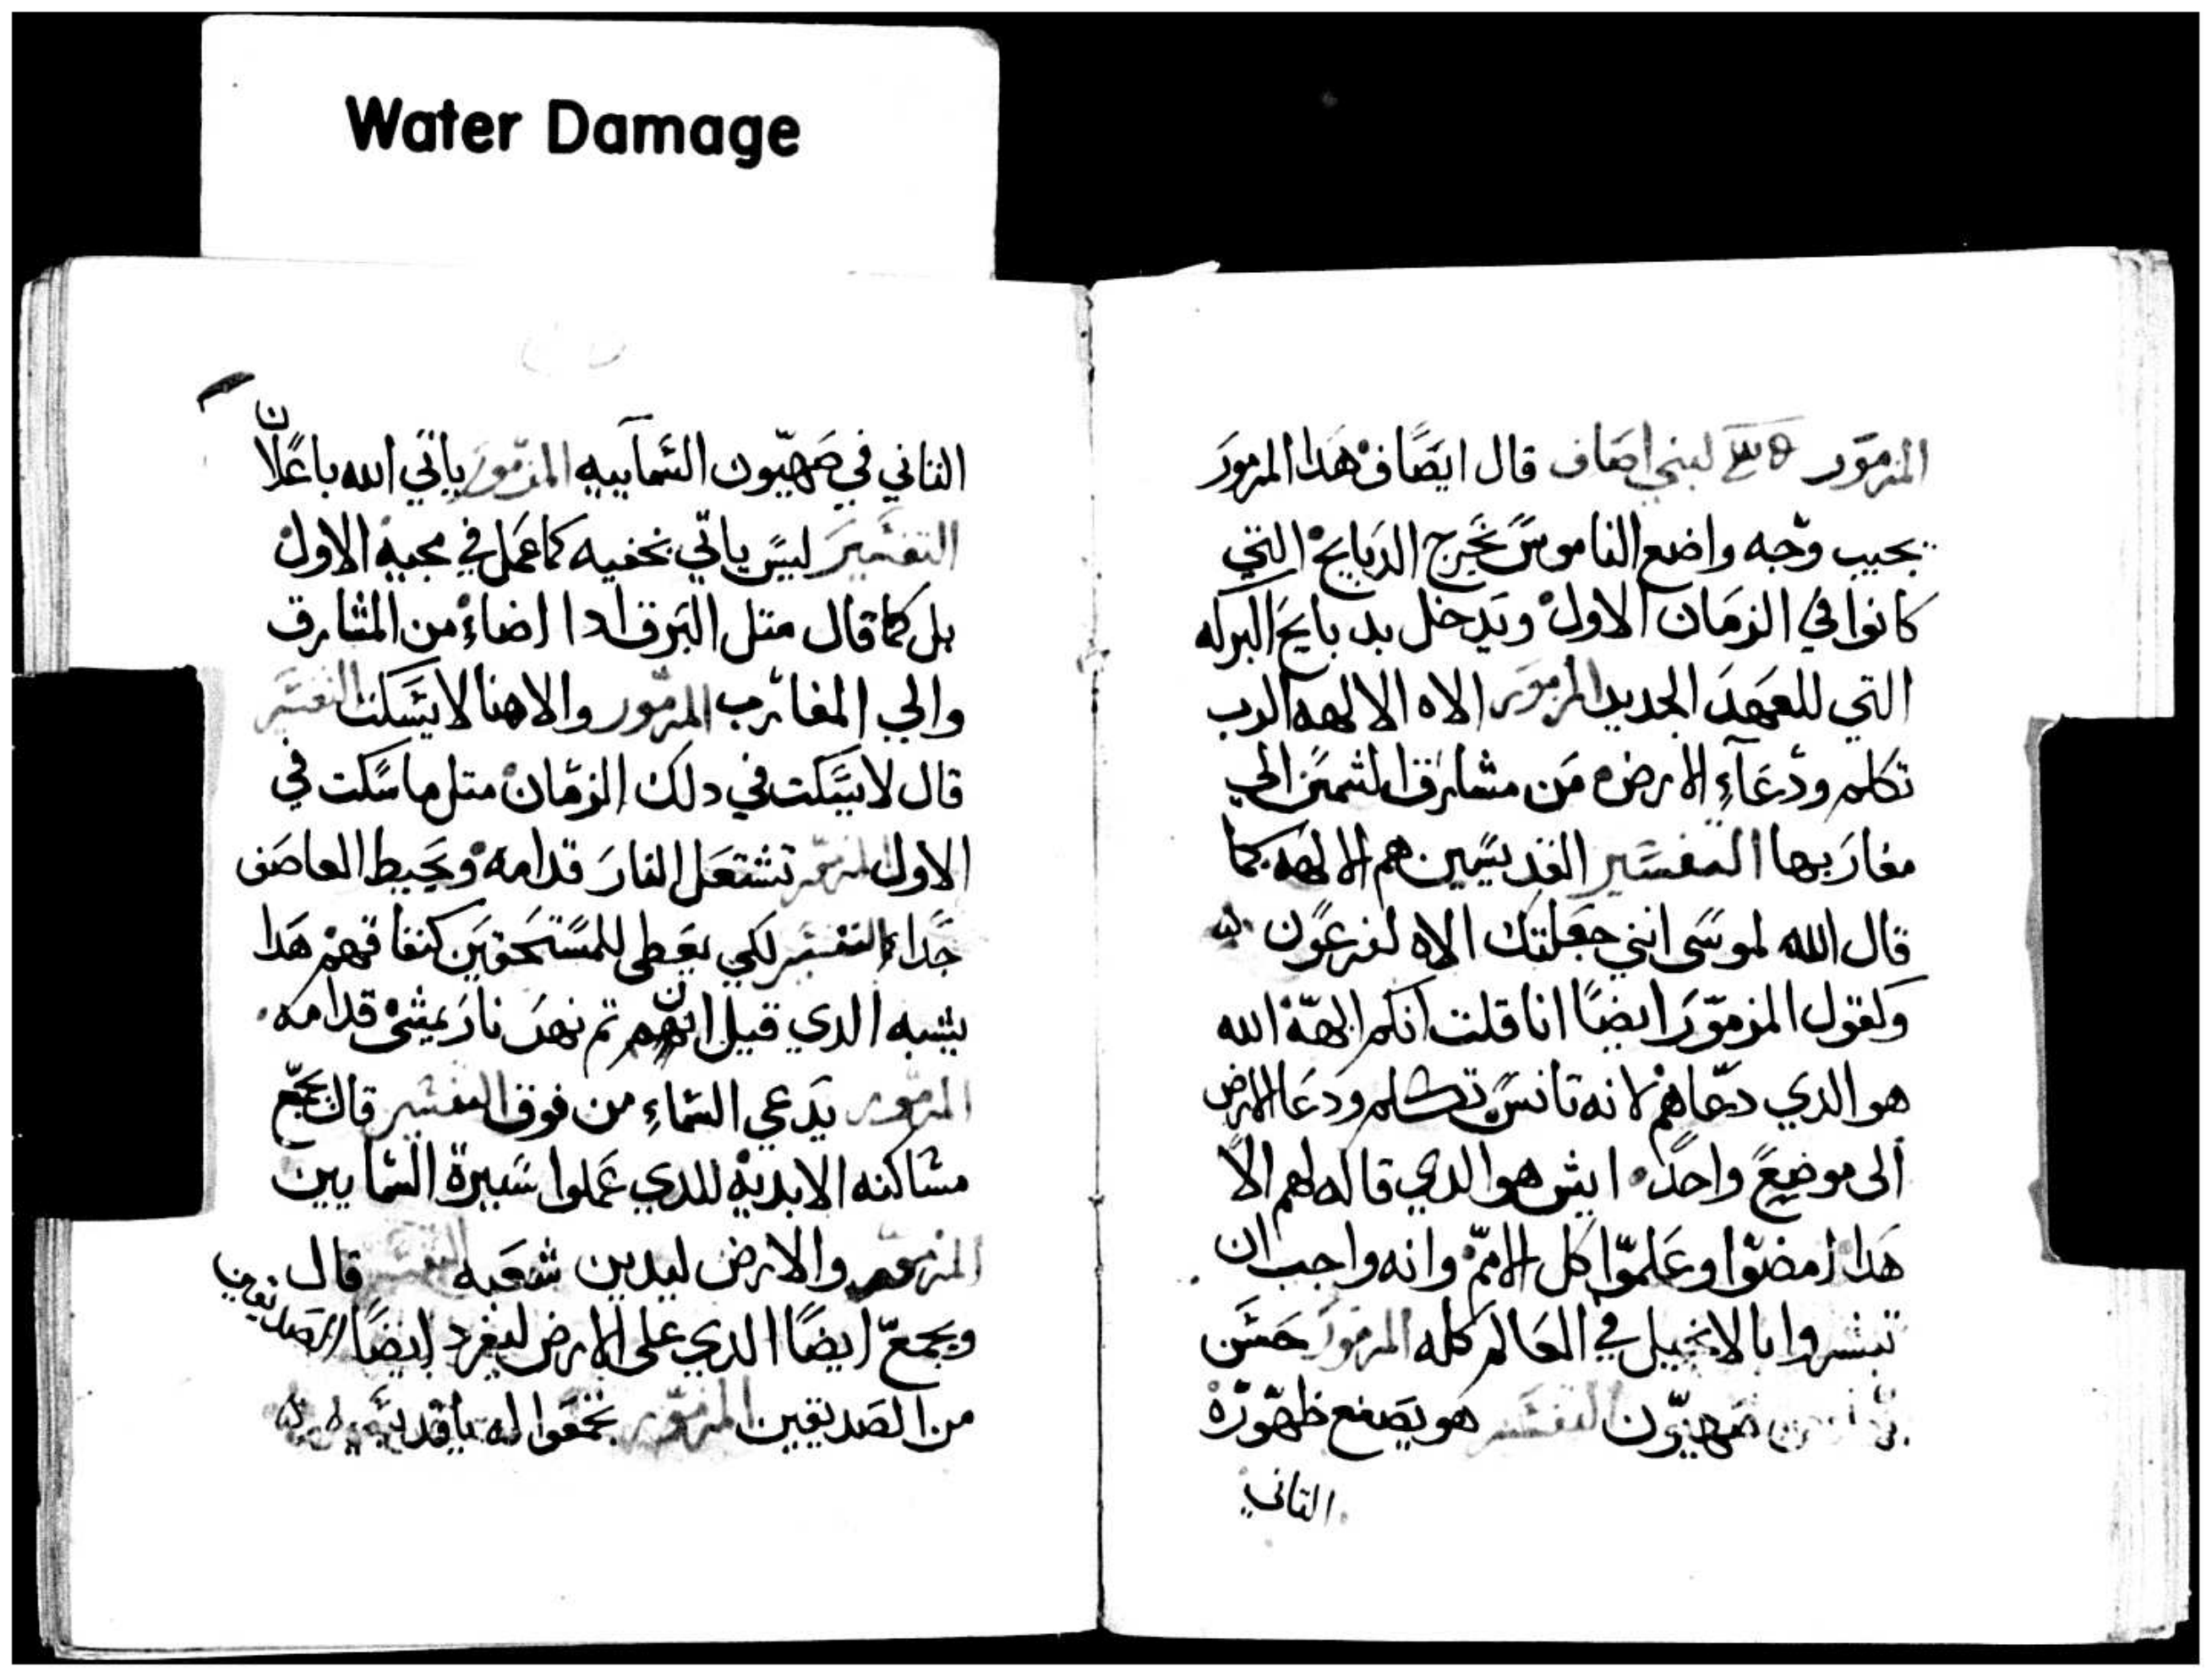 Water Damage
المزمور لبني اصاف قال ايضا في هدا المزمور
يجيب وجه واضع الناموس يخرج الدبايح التي
كانوا في الزمان الاول ويدخل بدبايح البركه
التي للعهد الجديد المزمور الاه الالهه الرب
تكلم ودعاء الارض من مشارق الشمس الي
مغاربها التفسير القديسين هم الالهه كما
قال الله لموسى انني جعلتك الاه لفرعون
وكقول المزمور ايضا انا قلت انكم الهة الله
هو الدي دعاهم لانه تانس تكلم ودعا الارض
الى موضع واحد ايش هو الدي قاله لهم الا
هدا امضوا وعلموا كل الامم وانه واجب ان
تبشروا بالانجيل في العالم كله المزمور حسن
صهيون التفسير هو يصنع ظهوره
الثاني
الثاني في صهيون السماييه المزمور ياتي الله باعلان
التفسير ليس ياتي بخفيه كما عمل في مجيه الاول
بل كما قال متل البرق ادا اضاء من المشارق
والي المغارب المزمور والاهنا لا يسكت التفسير
قال لا يسكت في دلك الزمان متل ما سكت في
الاول المزمور تشتعل النار قدامه ويحيط العاصف
جدا التفسير لكي يعطي للمستحقين كنفا فهم هدا
يشبه الدي قيل ان نهر نار يمشي قدامه
المزمور يدعي السماء من فوق التفسير قال يجمع
مساكنه الابديه للدي عملوا سيرة السمايين
المزمور والارض ليدين شعبه التفسير قال
ويجمع ايضا الدي على الارض ليفرد ايضا الصديقين
من الصديقين المزمور تجمعوا له يا قديسيه